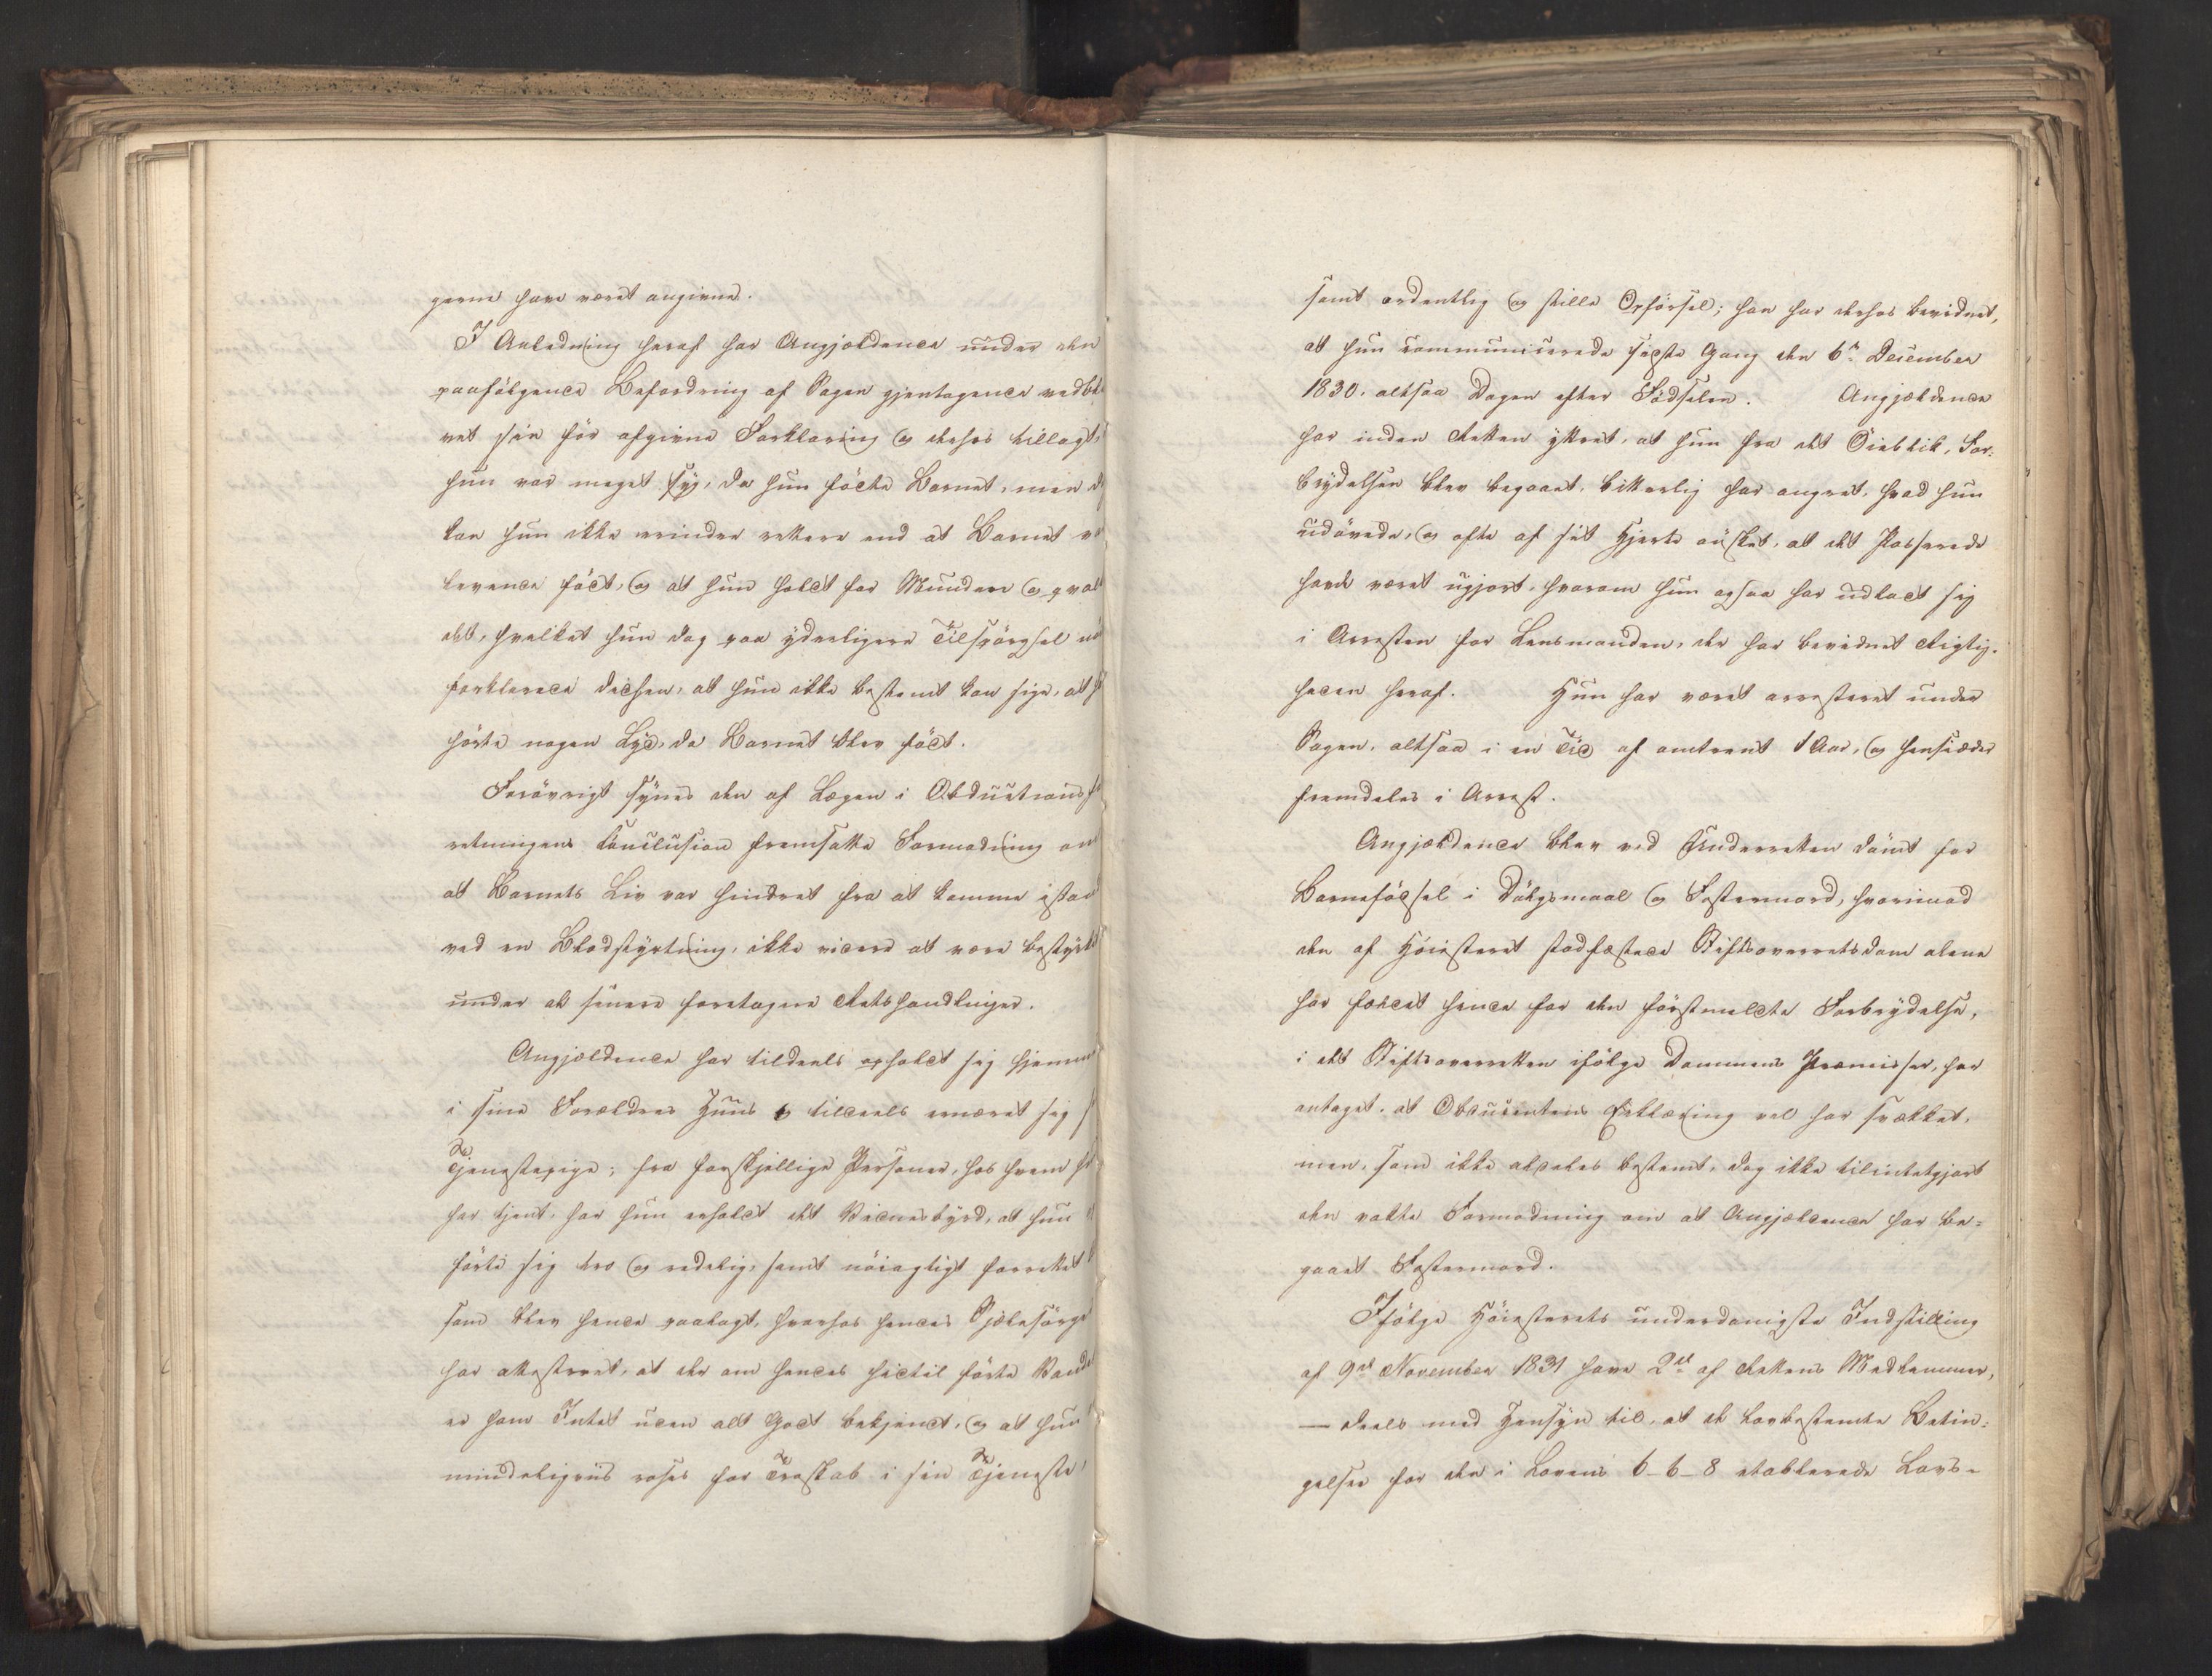 gerne have været angivne.
I Anledning heraf har Angjældende under den
paafølgende Befordring af Sagen gjentagende vedble
vet sin før afgivne Forklaring og derhos tillagt,
hun var meget syg, da hun fødte Barnet, men d
kan hun ikke erindre rettere end at Barnet va
levende født, og at hun holdt for Munden og qval
det, hvilket hun dog paa yderligere Tilspørgsel
forklarede derhen, at hun ikke bestemt kan sige, at h
hørte nogen Lyd, da Barnet blev født.
Forøvrigt synes den af Lægen i Obductionsf
retningens Conclusion fremsatte Formodning om
at Barnets Liv var hindret fra at komme istan
ved en Blodstyrtning, ikke videre at være bestyrket
under de senere foretagne Retshandlinger.
Angjældende har tildeels opholdt sig hjemme
i sine Forældres Huus og tildeels ernæret sig s
Tjenestepige; fra forskjellige Personer, hos hvem h
har tjent, har hun erholdt det Vidnesbyrd, at hun
førte sig tro og redelig, samt nøiagtigt forrettet
som blev hende paalagt, hvorhos hendes Sjælesørge
har attesteret, at der om hendes hidtil førte Vande
er ham Intet uden alt Godt bekjendt, og at hun
mindeligviis roses for Troskab i sin Tjeneste,
samt ordentlig og stille Opførsel; han har derhos bevidnet,
at hun communicerede sidste Gang den 6te December
1830, altsaa Dagen efter Fødselen. Angjældende
har inden Retten yttret, at hun fra det Øieblik, For-
brydelsen blev begaaet, bitterlig har angret, hvad hun
udøvede, og ofte af sit Hjerte ønsket, at det Passerede
havde været ugjort, hvorom hun ogsaa har udladt sig
i Arresten for Lensmanden, der har bevidnet Rigtig-
heden heraf. Hun har været arresteret under
Sagen, altsaa i en Tid af omtrent 1 Aar, og hensidder
fremdeles i Arrest.
Angjældende blev ved Underretten dømt for
Barnefødsel i Dølgsmaal og Fostermord, hvorimod
den af Høiesteret stadfæstede Stiftsoverretsdom alene
har fældet hende for den førstmeldte Forbrydelse,
i det Stiftsoverretten ifølge Dommens Præmisser, har
antaget, at Obducentens Erklæring vel har svækket,
men, som ikke aldeles bestemt, dog ikke tilintetgjort
den vakte Formodning om at Angjældende har be-
gaaet Fostermord.
Ifølge Høiesterets underdanigste Indstilling
af 9de November 1831 have 2de af Rettens Medlemmer,
— deels med Hensyn til, at de lovbestemte Betin-
gelser for den i Lovens 6-6-8 etablerede Lovs-